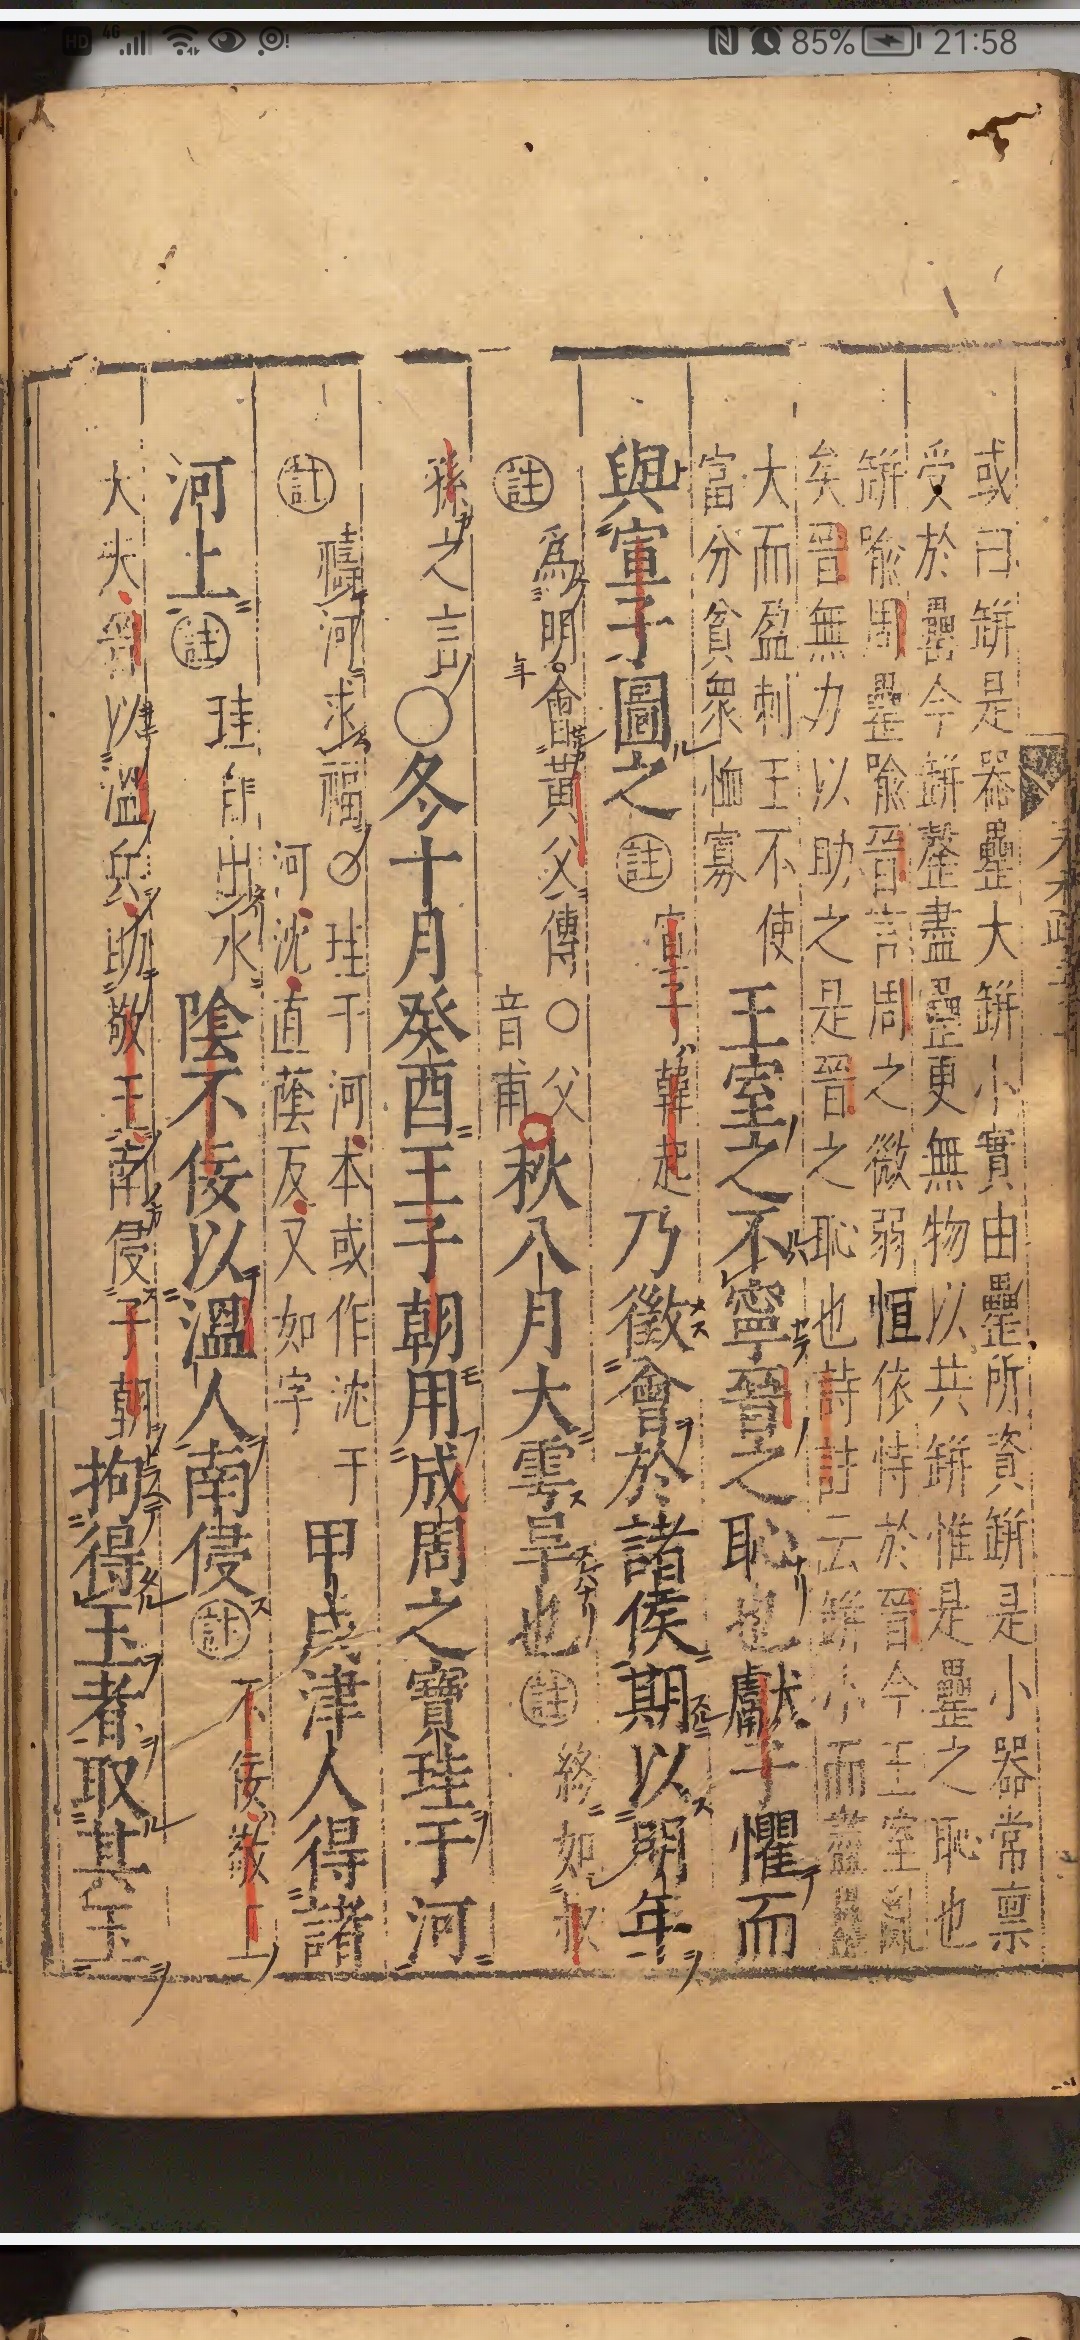 HD 4G 85% 21:58
或曰缾是器罍大缾小實由罍所資缾是小器常禀
受於罍今缾罄盡罍更無物以共缾惟是罍之恥也
缾喻周罍喻晉言周之微弱恒依恃於晉今王室亂
矣晉無力以助之是晉之恥也詩註云缾小而盡罍
大而盈刺王不使
富分貧衆恤寡
王室之不寧晉之恥也獻子懼而
與宣子圖之註宣子韓起乃徵會於諸侯期以明年
註爲明年會黃父傳○父音甫秋八月大雩旱也註終如叔
孫之言○冬十月癸酉王子朝用成周之寶珪于河
註禱河求福○珪于河本或作沈于
河沈直蔭反又如字
甲戌津人得諸
河上註珪自出水陰不佞以溫人南侵註不佞敬王
大夫晉以溫兵助敬王南侵子朝拘得玉者取其玉